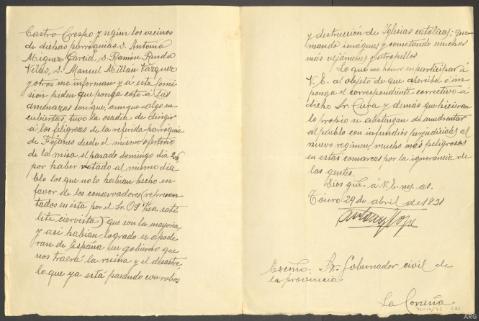 Castro Crespo y según los vecinos
de dichas parroquias D. Antonio
Mizquez García, D. Ramón Pando
Villas, D. Manuel Millán Vázquez
y otros me informan y a esta Comi
sion piden que ponga esto a las
amenazas con que, aunque algo en
cubiertas, tuvo la osadía de dirigir
á los feligreses de la referida parroquia
de Fojanes desde el mismo ofertorio
de la misa el pasado domingo día 26
por haber votado el mismo día
los que no lo habían hecho en
favor de los conservadores (represen
tados en ésta por el Sr. satéli
te ciervista) que son la mayoría
y así habían logrado se apode
ran de España un gobierno que
nos traerá la ruina y el desastre
lo que ya está pasando con robos
y destrucción de Iglesias católicas; que
mando imagenes y cometiendo muchos
más vejámenes y atropellos
Lo que me honro en participar á
V.E. al objeto de que aperciba ó im
ponga el correspondiente correctivo a
dicho Sr. Cura y demás que hicieran
lo propio se abstengan de amedrentar
al pueblo con infundios perjudiciales al
nuevo régimen, mucho más peligrosos
en estas comarcas por la ignorancia de
las gentes.
Dios gue. á V.E. m. a.
Touro 29 de abril de 1931
Excmo. Sr. Gobernador civil de
la provincia
La Coruña